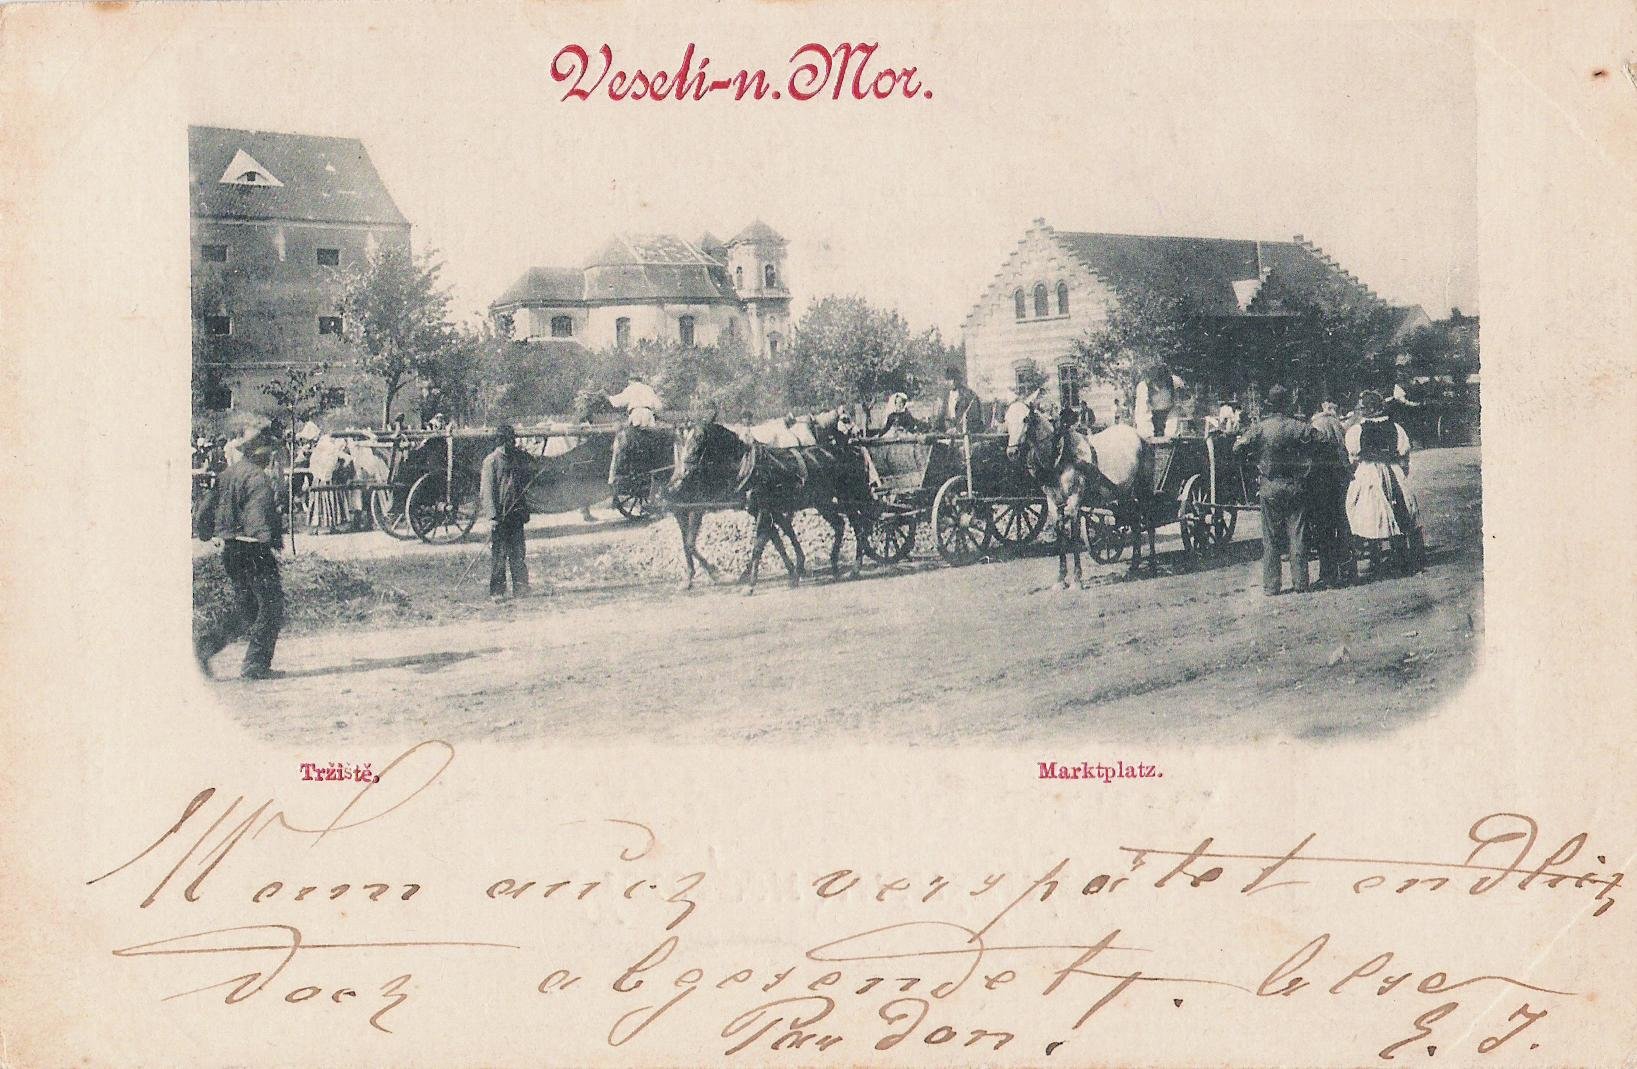 Veselí-n. Mor.
Tržiště.
Marktplatz.
Wenn auch verspätet endlich
doch abgesendet. Also
Pardon! E. J.